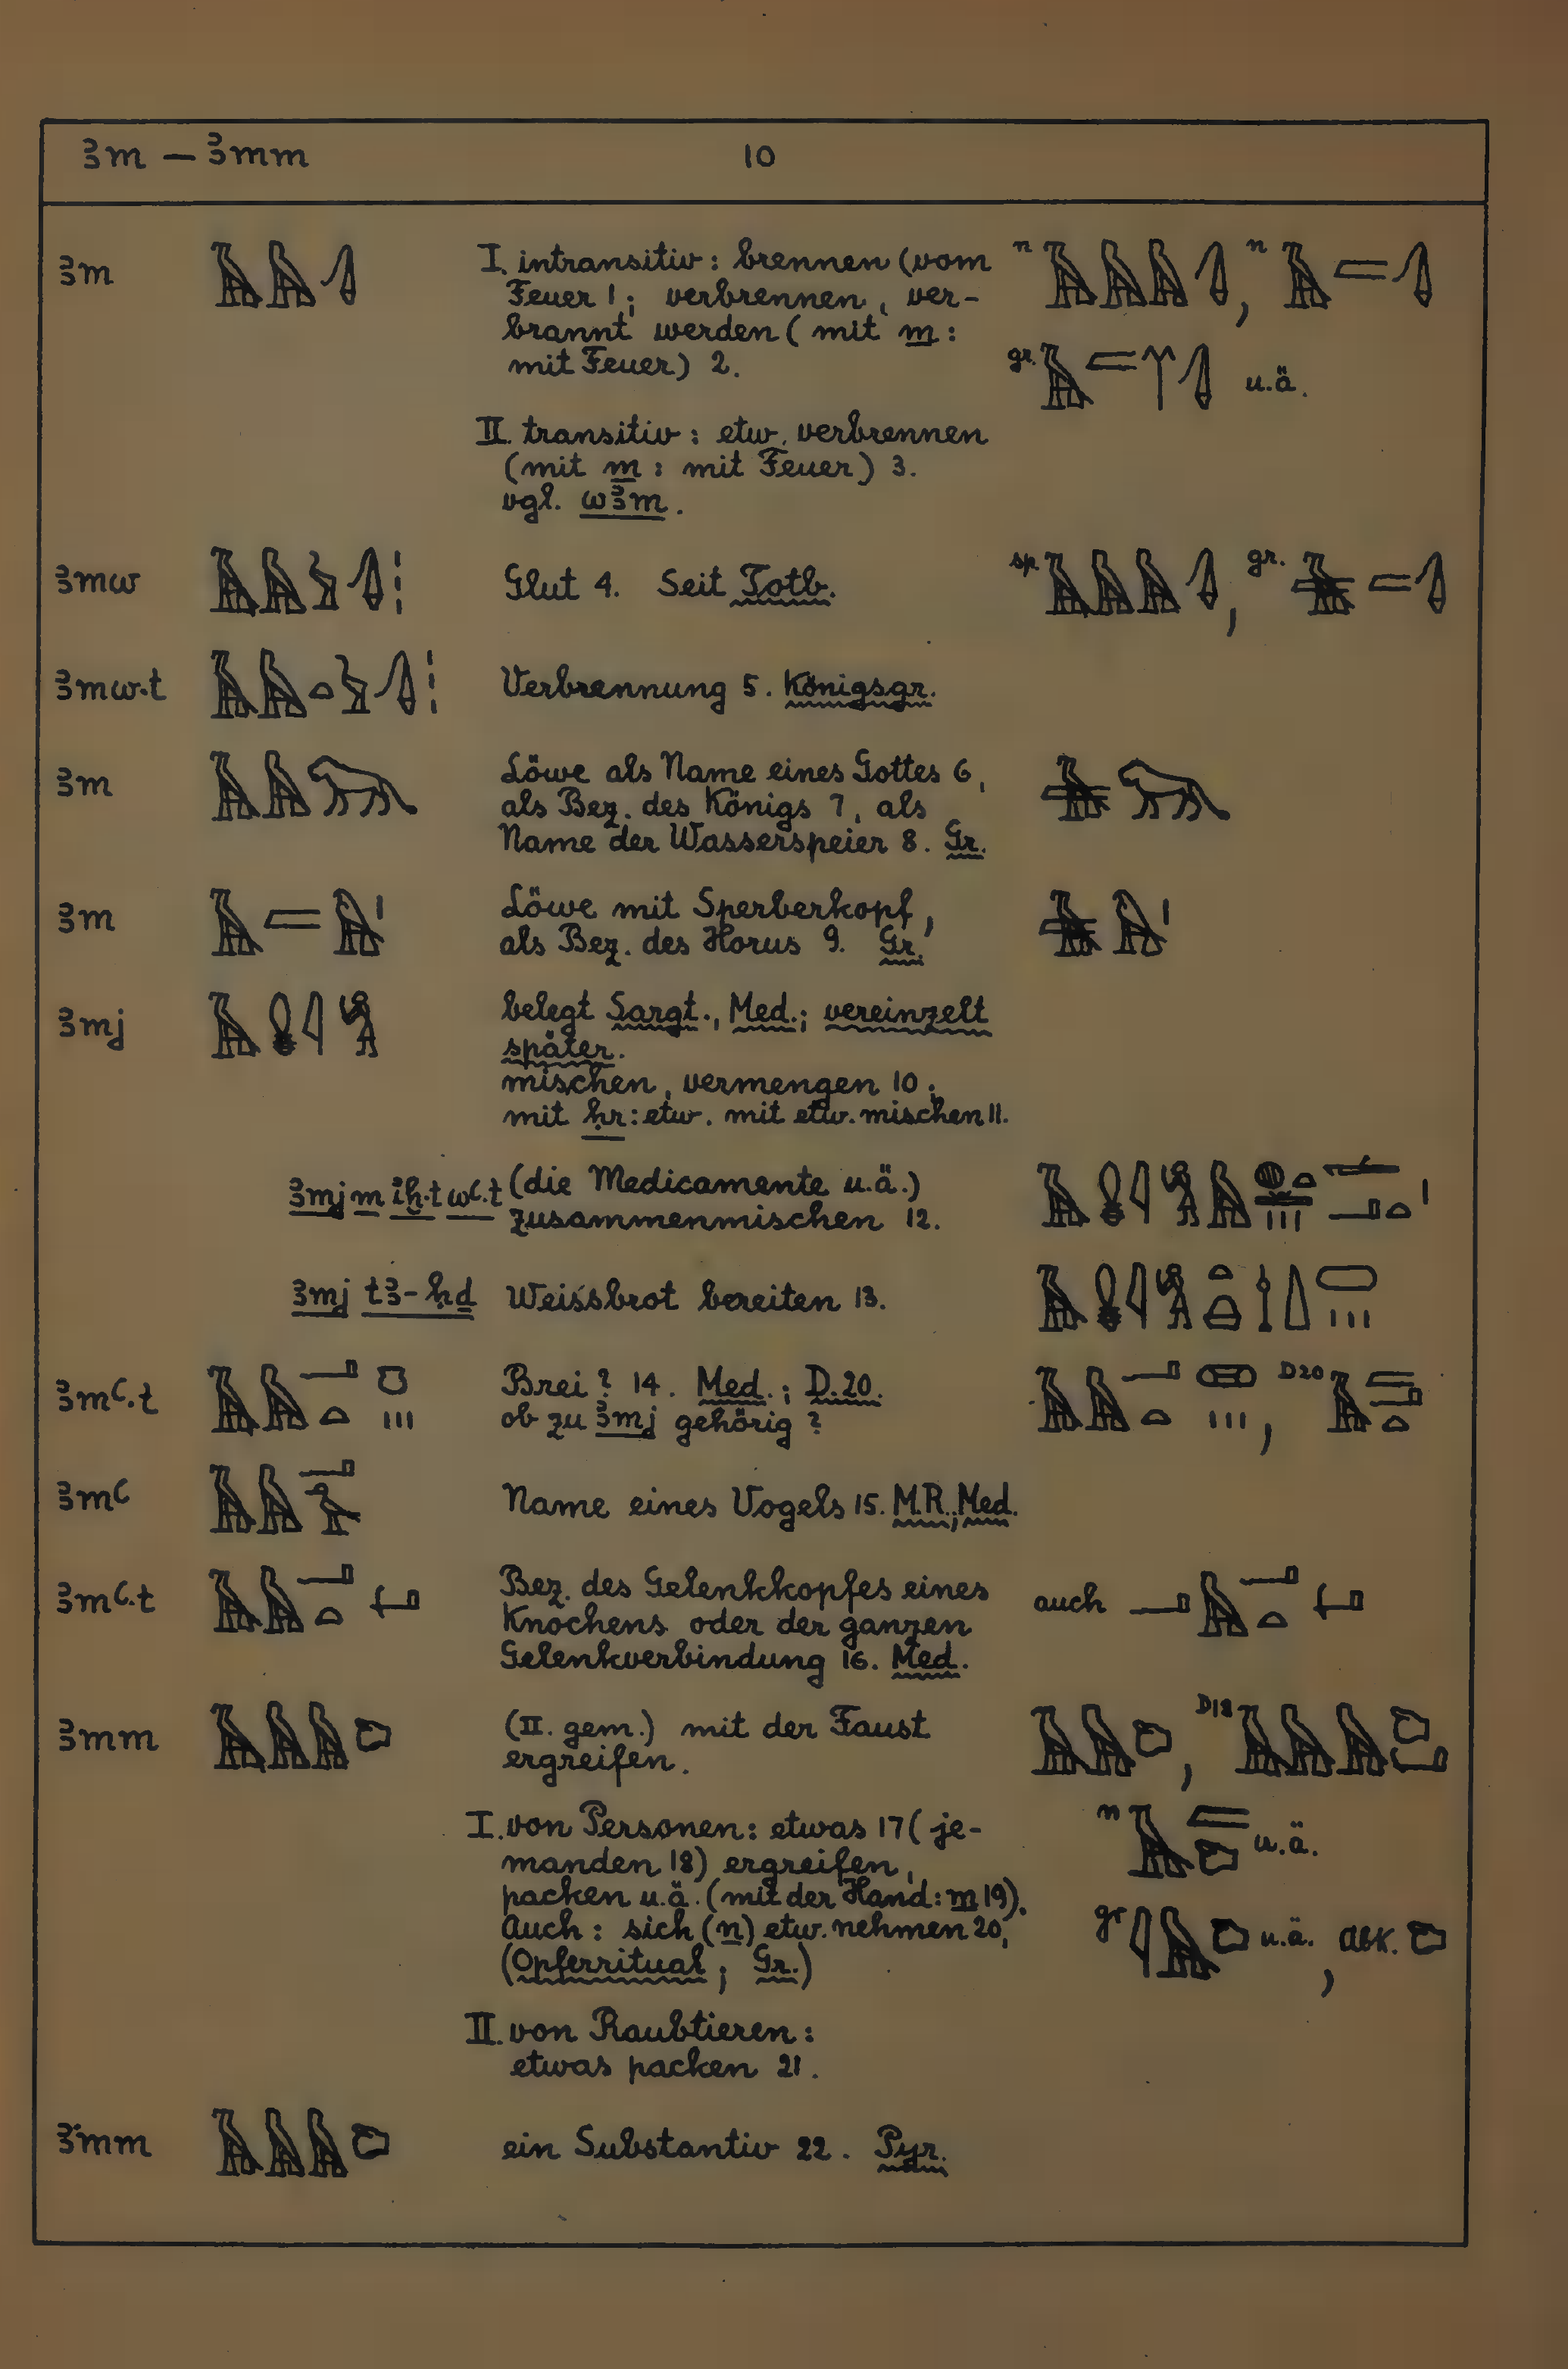 ꜣm — ꜣmm 10
ꜣm I. intransitiv: brennen (vom
Feuer 1; verbrennen, ver-
brannt werden (mit m:
mit Feuer) 2.
n , n
gr. u.ä.
II. transitiv: etw. verbrennen
(mit m: mit Feuer) 3.
vgl. wꜣm.
ꜣmw Glut 4. Seit Totb. sp. , gr.
ꜣmw.t Verbrennung 5. Königsgr.
ꜣm Löwe als Name eines Gottes 6,
als Bez. des Königs 7, als
Name der Wasserspeier 8. Gr.
ꜣm Löwe mit Sperberkopf,
als Bez. des Horus 9. Gr.
ꜣmj belegt Sargt., Med.; vereinzelt
später.
mischen, vermengen 10;
mit ḥr: etw. mit etw. mischen 11.
ꜣmj m iḫ.t wꜥ.t (die Medicamente u.ä.)
zusammenmischen 12.
ꜣmj tꜣ-ḥḏ Weissbrot bereiten 13.
ꜣmꜥ.t Brei? 14. Med.; D.20. , D20
ob zu ꜣmj gehörig?
ꜣmꜥ Name eines Vogels 15. M.R.; Med.
ꜣmꜥ.t Bez. des Gelenkkopfes eines auch
Knochens oder der ganzen
Gelenkverbindung 16. Med.
ꜣmm (II. gem.) mit der Faust , D18
ergreifen.
I. von Personen: etwas 17 (je-
manden 18) ergreifen,
packen u.ä. (mit der Hand: m 19).
Auch: sich (n) etw. nehmen 20,
(Opferritual; Gr.)
n u.ä.
gr u.ä., abk.
II. von Raubtieren:
etwas packen 21.
ꜣmm ein Substantiv 22. Pyr.